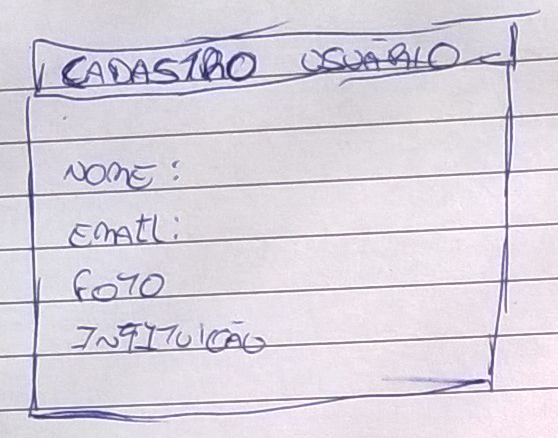 CADASTRO USUÁRIO
NOME:
EMAIL:
FOTO
INSTITUIÇÃO